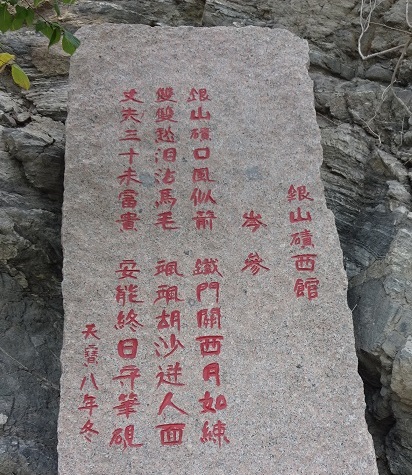 銀山磧西館
岑參
銀山磧口風似箭 鐵門關西月如練
雙雙愁泪沾馬毛 颯颯胡沙迸人面
丈夫三十未富貴 安能終日守筆硯
天寶八年冬